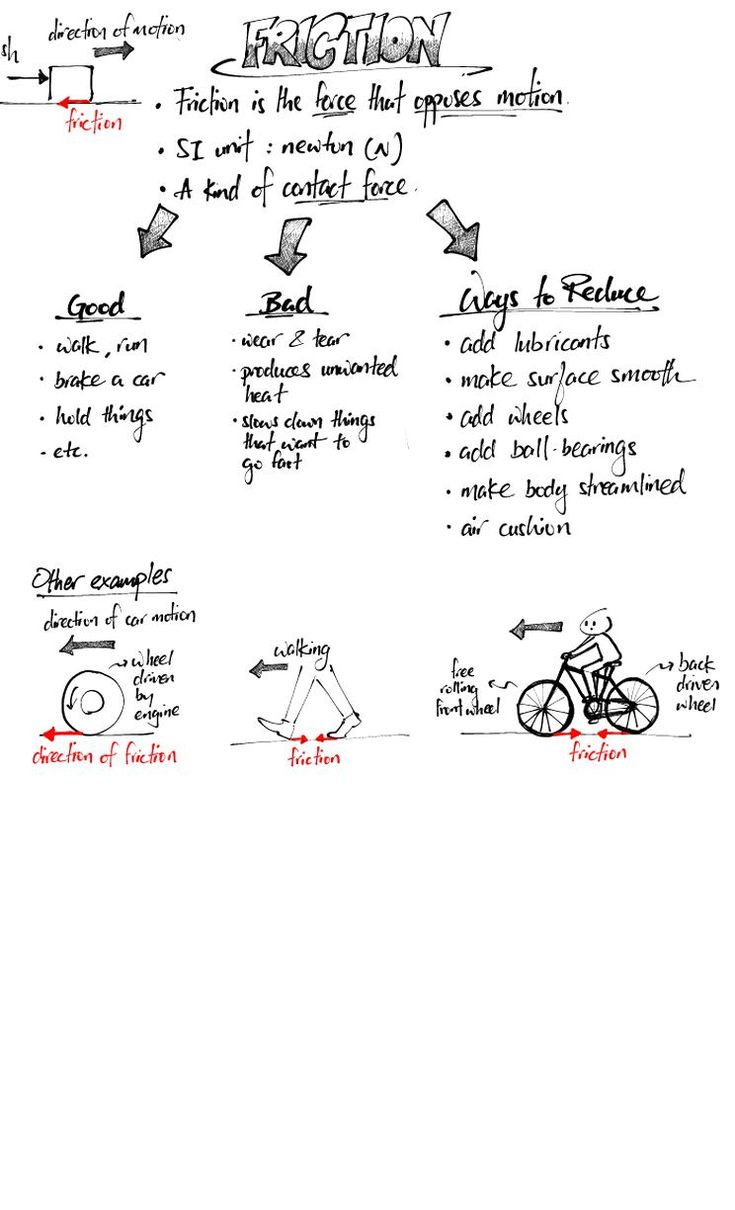 FRICTION
direction of motion
sh
friction
• Friction is the force that opposes motion.
• SI unit : newton (N)
• A kind of contact force.
Good
• walk, run
• brake a car
• hold things
• etc.
Bad
• wear & tear
• produces unwanted
heat
• slows down things
that want to
go fast
Ways to Reduce
• add lubricants
• make surface smooth
• add wheels
• add ball-bearings
• make body streamlined
• air cushion
Other examples
direction of car motion
wheel
driven
by
engine
direction of friction
walking
friction
free
rolling
front wheel
back
driven
wheel
friction